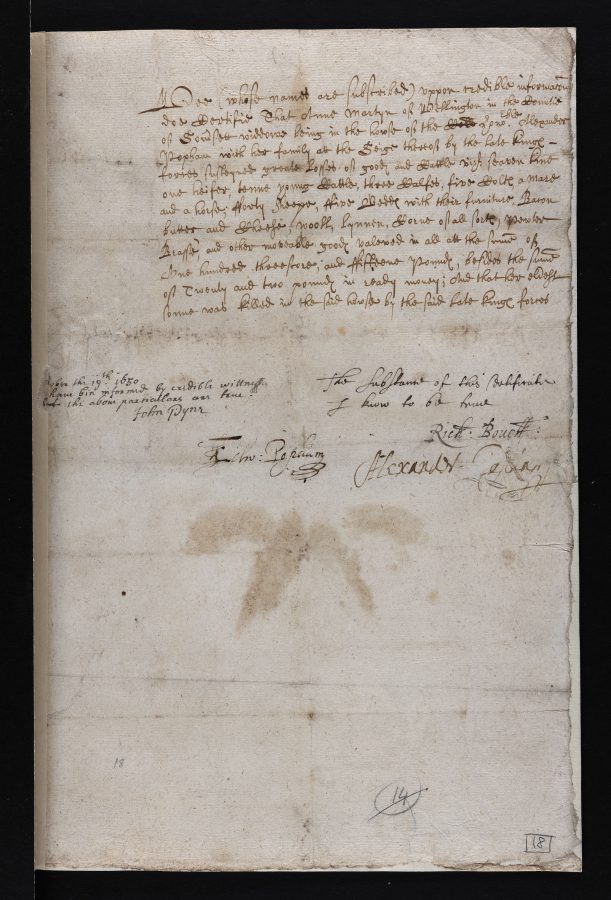 Wee (whose names are subscribed) uppon credible informacon
doe Certifie That Anne Martyn of Wellington in the Countie
of Somsett widdowe being in the howse of the Honoble Alexander
Popham with her family att the Seige thereof by the late Kings
forces susteyned greate losses of goods and Cattle vizt seaven kine
one heifer, tenne young Cattle, three Calfes, five Colts, a mare
and a horse, fforty sheepe, ffive Bedds with their furniture, Bacon
butter and Cheese, wooll, lynnen, Corne of all sorts, Pewter
Brasse and other moveable goods valewed in all att the summe of
One hundred threescore, and ffifteene Pounds, besides the summe
of Twenty and two pounds in ready money; And that her eldest
sonne was killed in the said howse by the said late Kings forces
the 19th 1650
have bin informed by credible wittness
the above particulars are true
John Pyne
The substance of this Certificate
I know to be true
Rich: Bovett:
Edw: Popham
Alexander Popham
18
14
18